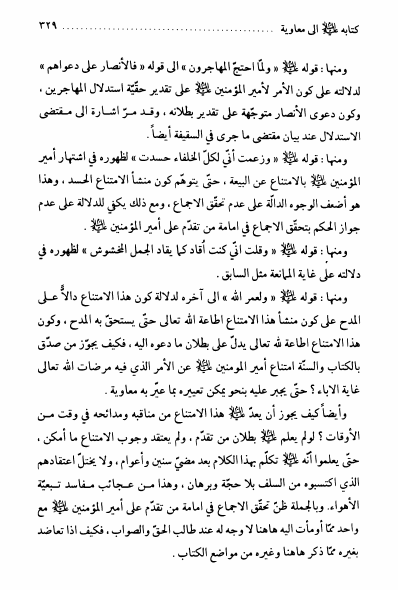 كتابه ﷺ الى معاوية ........................................ ٣٢٩
ومنها : قوله ﷺ « ولمّا احتجّ المهاجرون » الى قوله « فالأنصار على دعواهم »
لدلالته على كون الأمر لأمير المؤمنين ﷺ على تقدير حقّيّة استدلال المهاجرين ،
وكون دعوى الأنصار متوجّهة على تقدير بطلانه ، وقد مرّ اشارة الى مقتضى
الاستدلال عند بيان مقتضى ما جرى في السقيفة أيضاً .
ومنها : قوله ﷺ « وزعمت أنّي لكلّ الخلفاء حسدت » لظهوره في اشتهار أمير
المؤمنين ﷺ بالامتناع عن البيعة ، حتّى يتوهّم كون منشأ الامتناع الحسد ، وهذا
هو أضعف الوجوه الدالّة على عدم تحقّق الاجماع ، ومع ذلك يكفي للدلالة على عدم
جواز الحكم بتحقّق الاجماع في امامة من تقدّم على أمير المؤمنين ﷺ .
ومنها : قوله ﷺ « وقلت انّي كنت أقاد كما يقاد الجمل المخشوش » لظهوره في
دلالته على غاية الممانعة مثل السابق .
ومنها : قوله ﷺ « ولعمر الله » الى آخره لدلالة كون هذا الامتناع دالاًّ على
المدح على كون منشأ هذا الامتناع اطاعة الله تعالى حتّى يستحقّ به المدح ، وكون
هذا الامتناع اطاعة لله تعالى يدلّ على بطلان ما دعوه اليه ، فكيف يجوّز من صدّق
بالكتاب والسنّة امتناع أمير المومنين ﷺ عن الأمر الذي فيه مرضات الله تعالى
غاية الاباء ؟ حتّى يجبر عليه بنحو يمكن تعييره بما عيّر به معاوية .
وأيضاً كيف يجوز أن يعدّ ﷺ هذا الامتناع من مناقبه ومدائحه في وقت من
الأوقات ؟ لولم يعلم ﷺ بطلان من تقدّم ، ولم يعتقد وجوب الامتناع ما أمكن ،
حتّى يعلموا أنّه ﷺ تكلّم بهذا الكلام بعد مضيّ سنين وأعوام ، ولا يختلّ اعتقادهم
الذي اكتسبوه من السلف بلا حجّة وبرهان ، وهذا من عجائب مفاسد تبعيّة
الأهواء. وبالجملة ظنّ تحقّق الاجماع في امامة من تقدّم على أمير المؤمنين ﷺ مع
واحد ممّا أومأت اليه هاهنا لا وجه له عند طالب الحقّ والصواب ، فكيف اذا تعاضد
بغيره ممّا ذكر هاهنا وغيره من مواضع الكتاب .